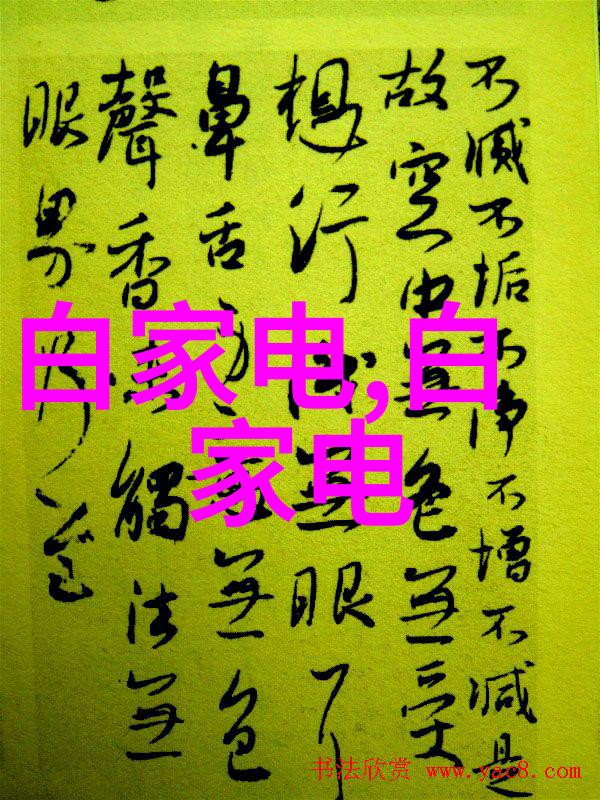 不滅不垢不淨不增不減是
故空中無色無受
想行識無眼耳
鼻舌身意無色
聲香味觸法無
眼界乃
白家电,白
家电
书法欣赏 www.yac8.com